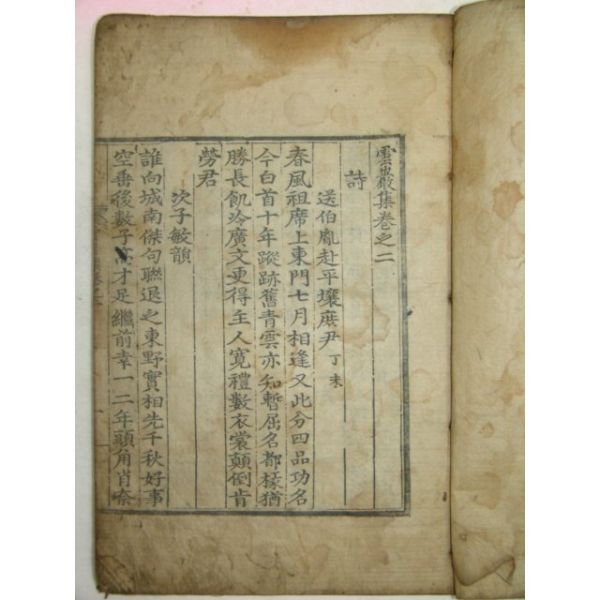 雲巖集卷之二
詩
送伯胤赴平壤庶尹 丁未
春風祖席上東門七月相逢又此分四品功名
今白首十年蹤跡舊青雲亦知暫屈名都掾猶
勝長飢冷廣文更得主人寬禮數衣裳顛倒肯
勞君
次子敏韻
誰向城南傑句聯退之東野實相先千秋好事
空番後數子高才足繼前幸一二年頭角肖奈